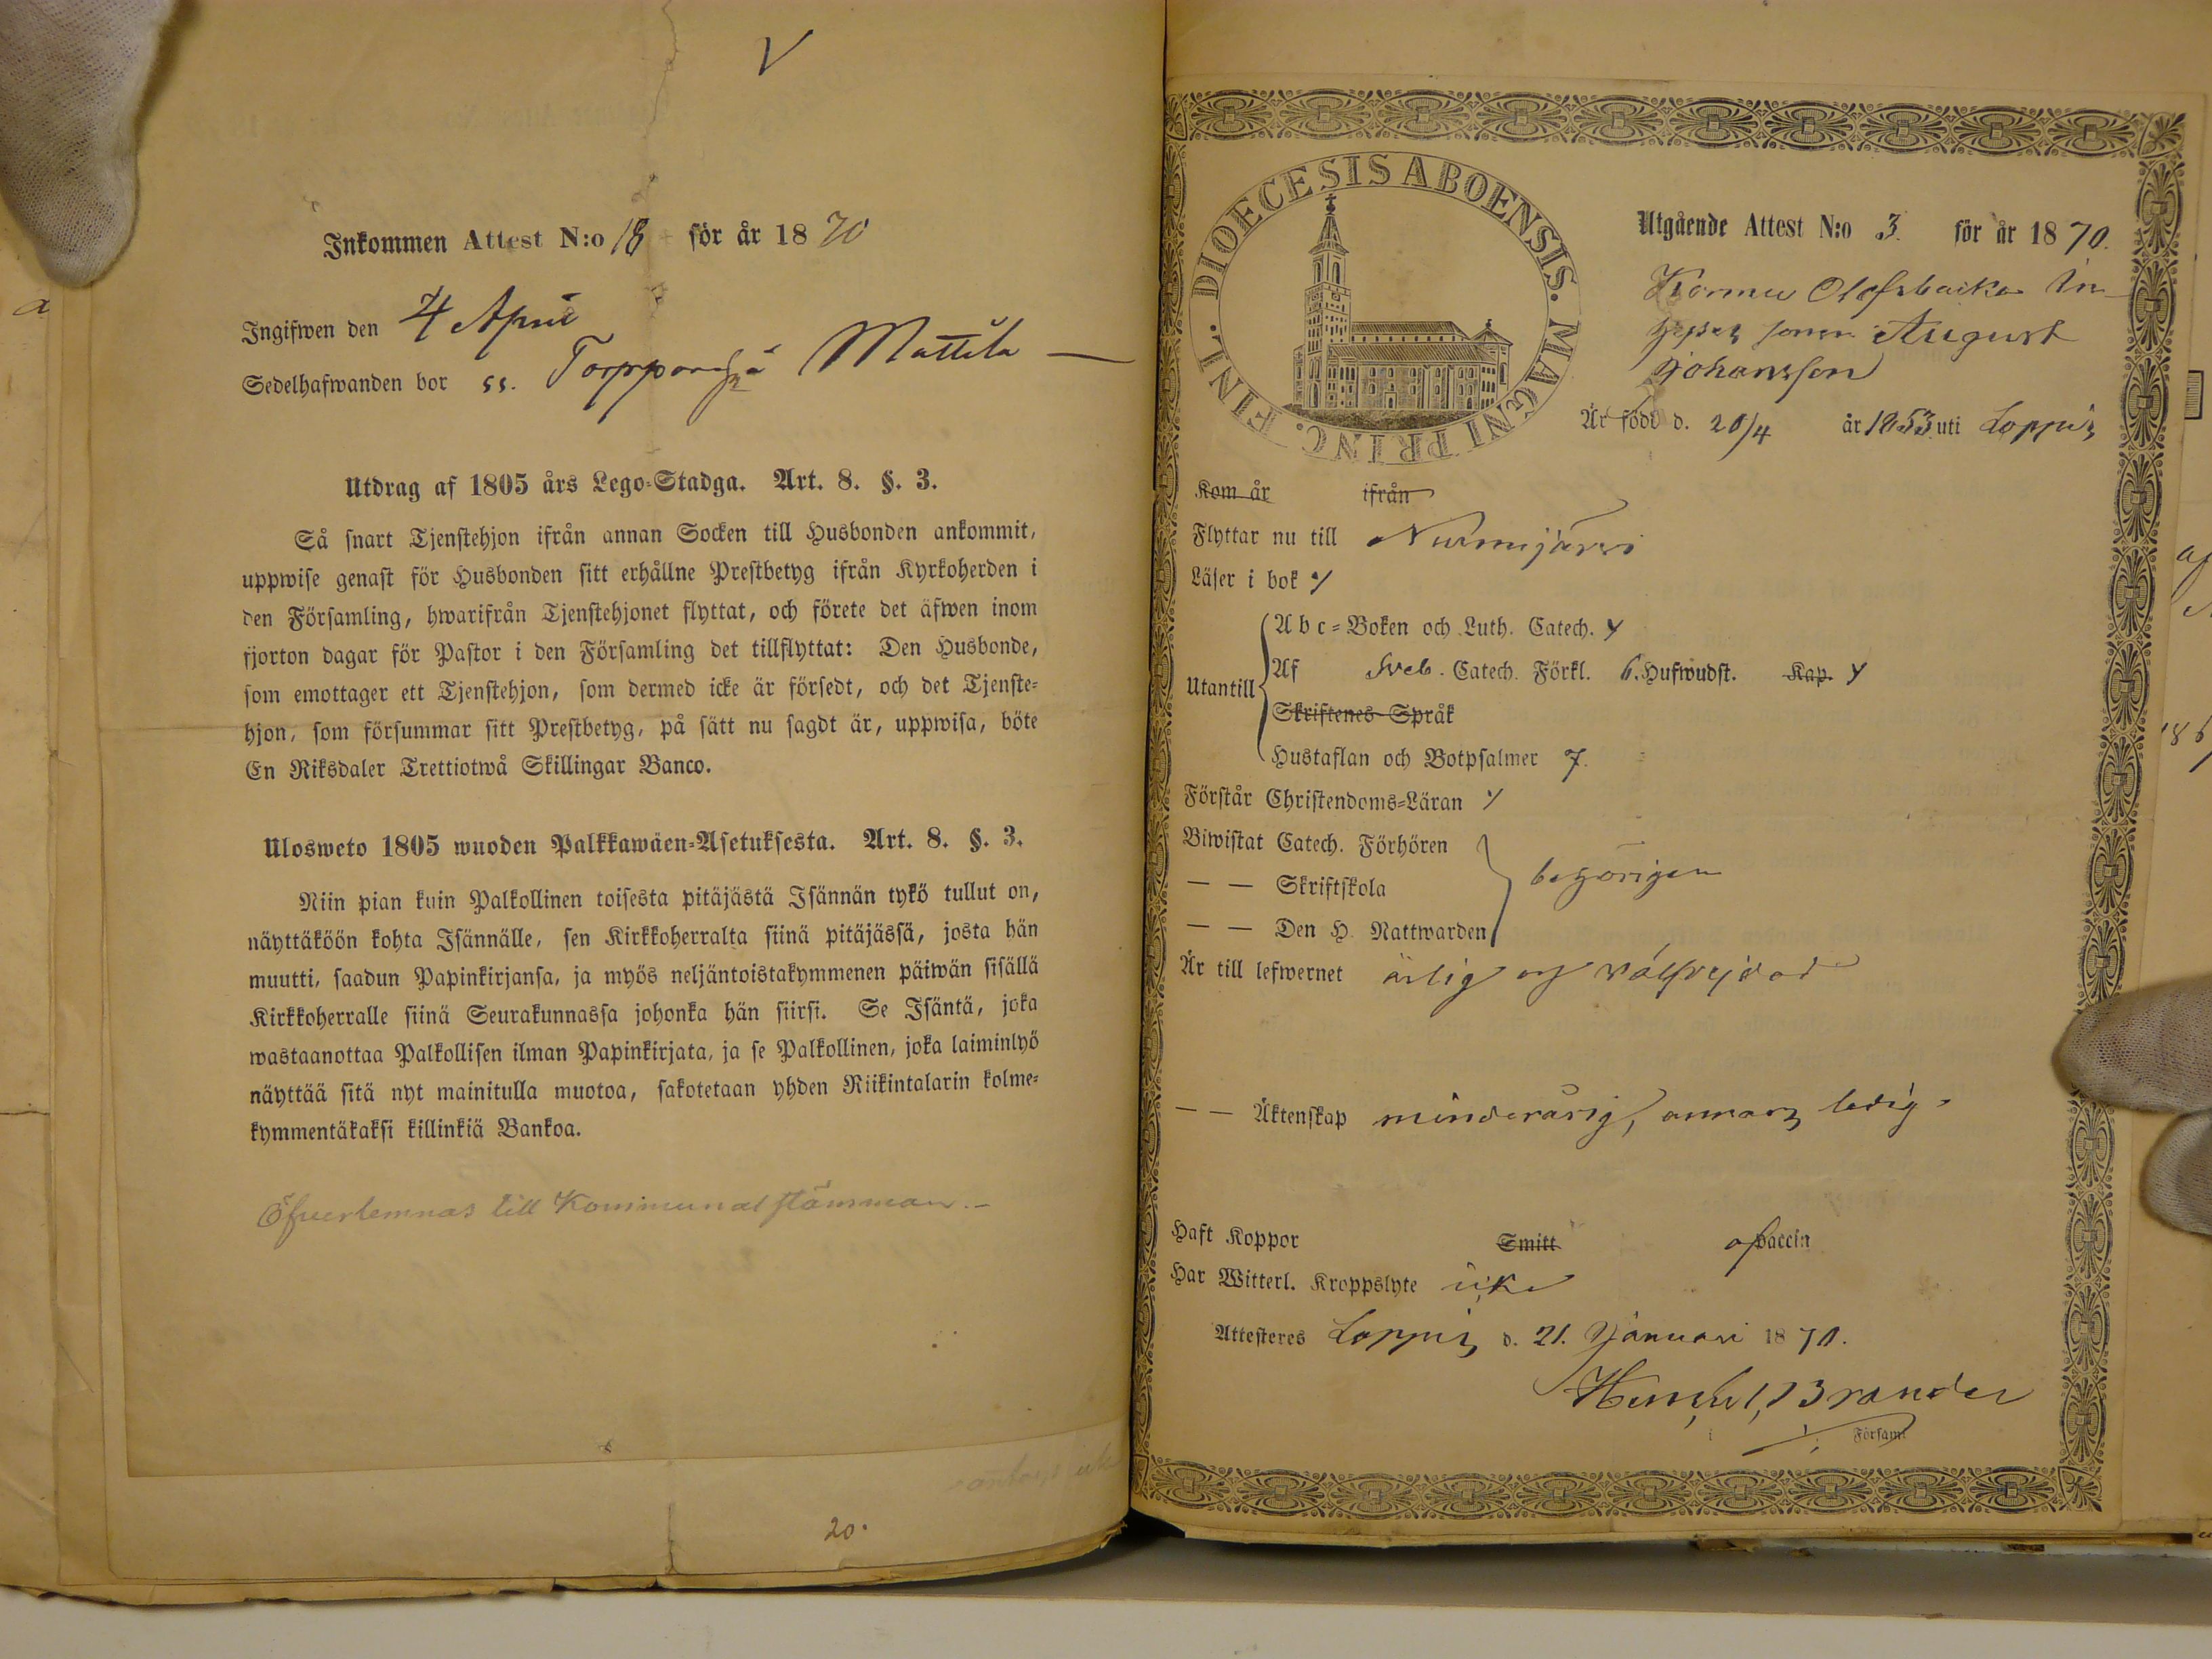 V
Inkommen Attest N:o 18 för år 1870
Ingifwen den 4 April
Sedelhafwanden bor ss. Mattila —
Utdrag af 1805 års Lego-Stadga. Art. 8. §. 3.
Så snart Tjenstehjon ifrån annan Socken till Husbonden ankommit,
uppwise genast för Husbonden sitt erhållne Prestbetyg ifrån Kyrkoherden i
den Församling, hwarifrån Tjenstehjonet flyttat, och förete det äfwen inom
fjorton dagar för Pastor i den Församling det tillflyttat: Den Husbonde,
som emottager ett Tjenstehjon, som dermed icke är försedt, och det Tjenste-
hjon, som försummar sitt Prestbetyg, på sätt nu sagdt är, uppwisa, böte
En Riksdaler Trettiotwå Skillingar Banco.
Ulosweto 1805 wuoden Palkkawäen-Asetuksesta. Art. 8. §. 3.
Niin pian kuin Palkollinen toisesta pitäjästä Isännän tykö tullut on,
näyttäköön kohta Isännälle, sen Kirkkoherralta siinä pitäjässä, josta hän
muutti, saadun Papinkirjansa, ja myös neljäntoistakymmenen päiwän sisällä
Kirkkoherralle siinä Seurakunnassa johonka hän siirsi. Se Isäntä, joka
wastaanottaa Palkollisen ilman Papinkirjata, ja se Palkollinen, joka laiminlyö
näyttää sitä nyt mainitulla muotoa, sakotetaan yhden Riikintalarin kolme-
kymmentäkaksi killinkiä Bankoa.
Öfverlemnas till Kommunalstämman.-
20.
DIOECESIS ABOENSIS. MAGNI PRINC. FINL.
Utgående Attest N:o 3. för år 1870.
Kormu Olofsbacka In-
hyses sonen August
Johansson
Är född d. 20/4 år 1853 uti Loppis
Kom år ifrån
Flyttar nu till Nurmijärvi
Läser i bok
Utantill
Abc-Boken och Luth. Catech.
Af Sveb. Catech. Förkl. 6. Hufwudst. Kap.
Skriftenes Språk
Hustaflan och Botpsalmer 7.
Förstår Christendoms-Läran
Biwistat Catech. Förhören
— — Skriftskola behörigen
— — Den H. Nattwarden
Är till lefwernet ärlig och välfrejdad
— — Äktenskap minderårig, annars ledig.
Haft Koppor Smitt af vaccin
Har Witterl. Kroppslyte icke
Attesteres Loppis d. 21. Januari 1870.
Brander
Församl